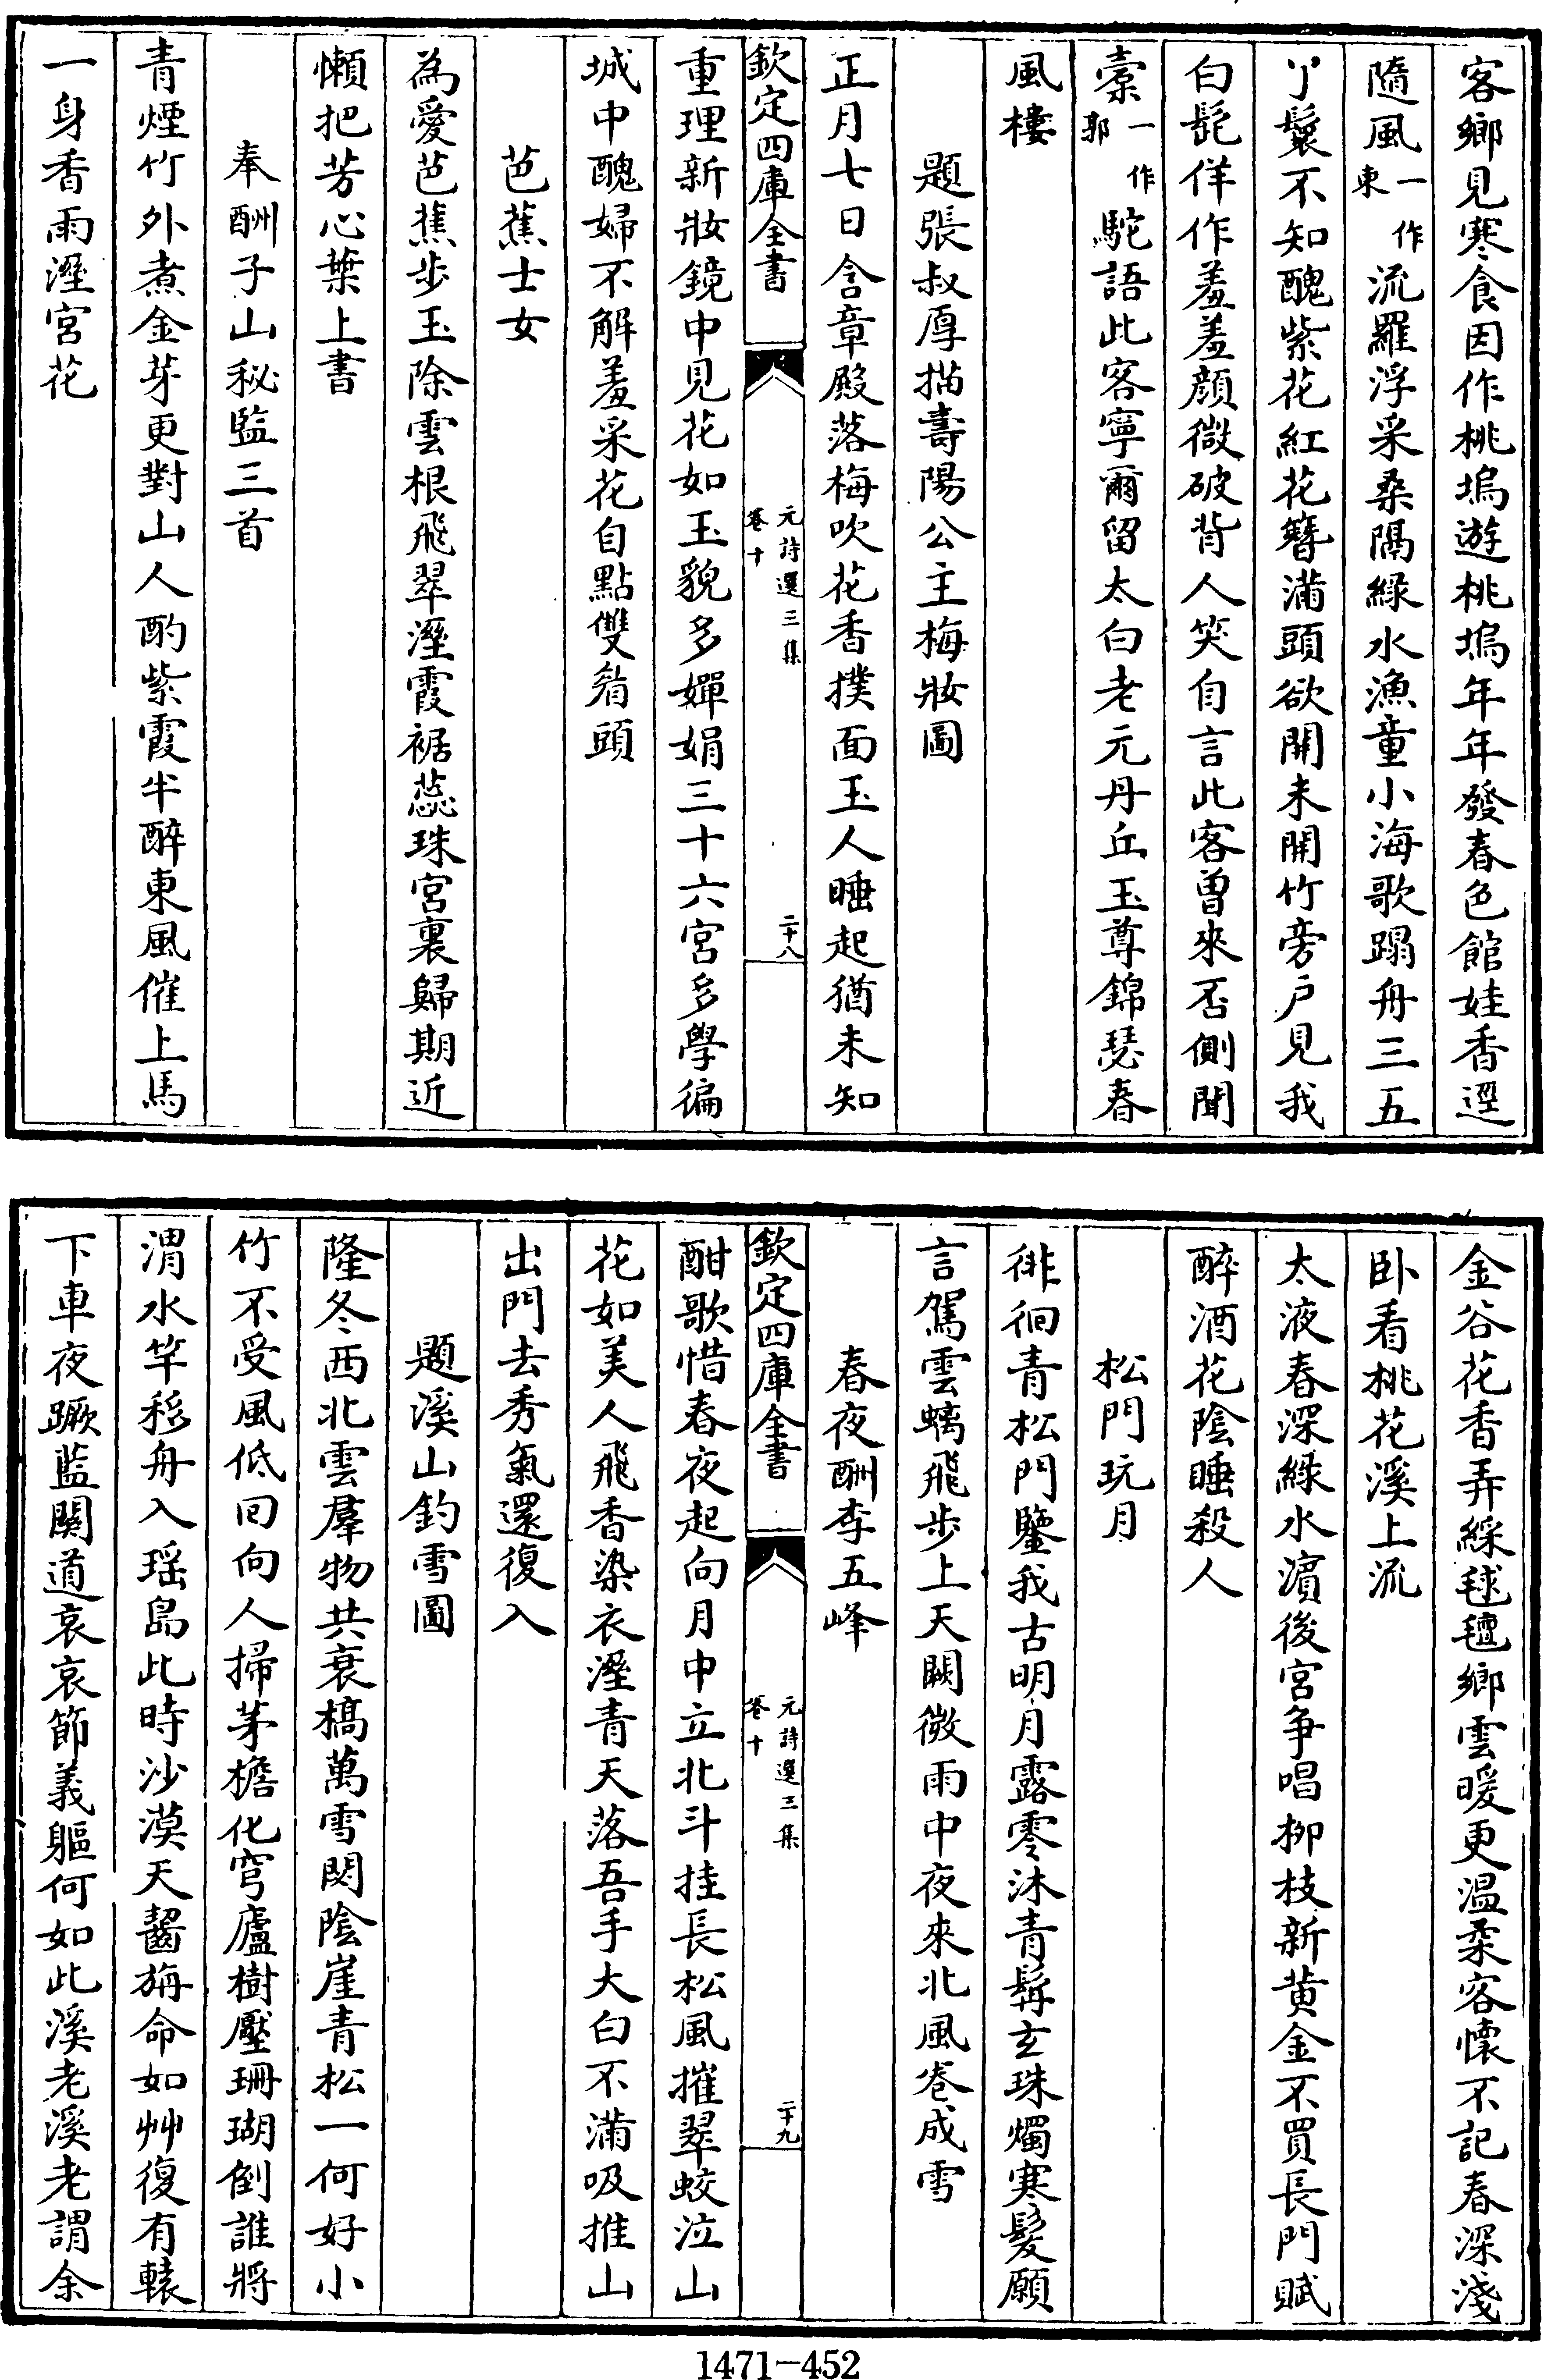 客鄉見寒食因作桃塢遊桃塢年年發春色館娃香逕
隨風一作東流羅浮采桑隔綠水漁童小海歌蹋舟三五
丫鬟不知醜紫花紅花簪滿頭欲開未開竹旁戶見我
白髭佯作羞羞顏微破背人笑自言此客曾來否側聞
橐一作郭駝語此客寧爾留太白老元丹丘玉尊錦瑟春
風樓
題張叔厚描壽陽公主梅妝圖
正月七日含章殿落梅吹花香撲面玉人睡起猶未知
欽定四庫全書
元詩選三集
卷十
二十八
重理新妝鏡中見花如玉貌多嬋娟三十六宮多學徧
城中醜婦不解羞采花自點雙眉頭
芭蕉士女
為愛芭蕉步玉除雲根飛翠溼霞裾蕊珠宮裏歸期近
懶把芳心葉上書
奉酬子山秘監三首
青煙竹外煮金芽更對山人酌紫霞半醉東風催上馬
一身香雨溼宮花
金谷花香弄綵毬氊鄉雲暖更温柔客懷不記春深淺
卧看桃花溪上流
太液春深綠水濱後宮爭唱柳枝新黄金不買長門賦
醉酒花陰睡殺人
松門玩月
徘徊青松門鑒我古明月露零沐青髯玄珠燭寒髮願
言駕雲螭飛步上天闕微雨中夜來北風卷成雪
春夜酬李五峰
欽定四庫全書
元詩選三集
卷十
二十九
酣歌惜春夜起向月中立北斗挂長松風摧翠蛟泣山
花如美人飛香染衣溼青天落吾手大白不滿吸推山
出門去秀氣還復入
題溪山釣雪圖
隆冬西北雲羣物共衰槁萬雪閟陰崖青松一何好小
竹不受風低回向人掃茅檐化穹廬樹壓珊瑚倒誰將
渭水竿移舟入瑶島此時沙漠天齧旃命如艸復有轅
下車夜蹶藍關道哀哀節義軀何如此溪老溪老謂余
1471-452